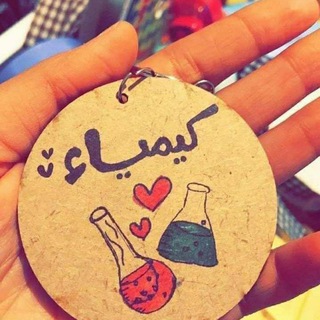 كيمياء